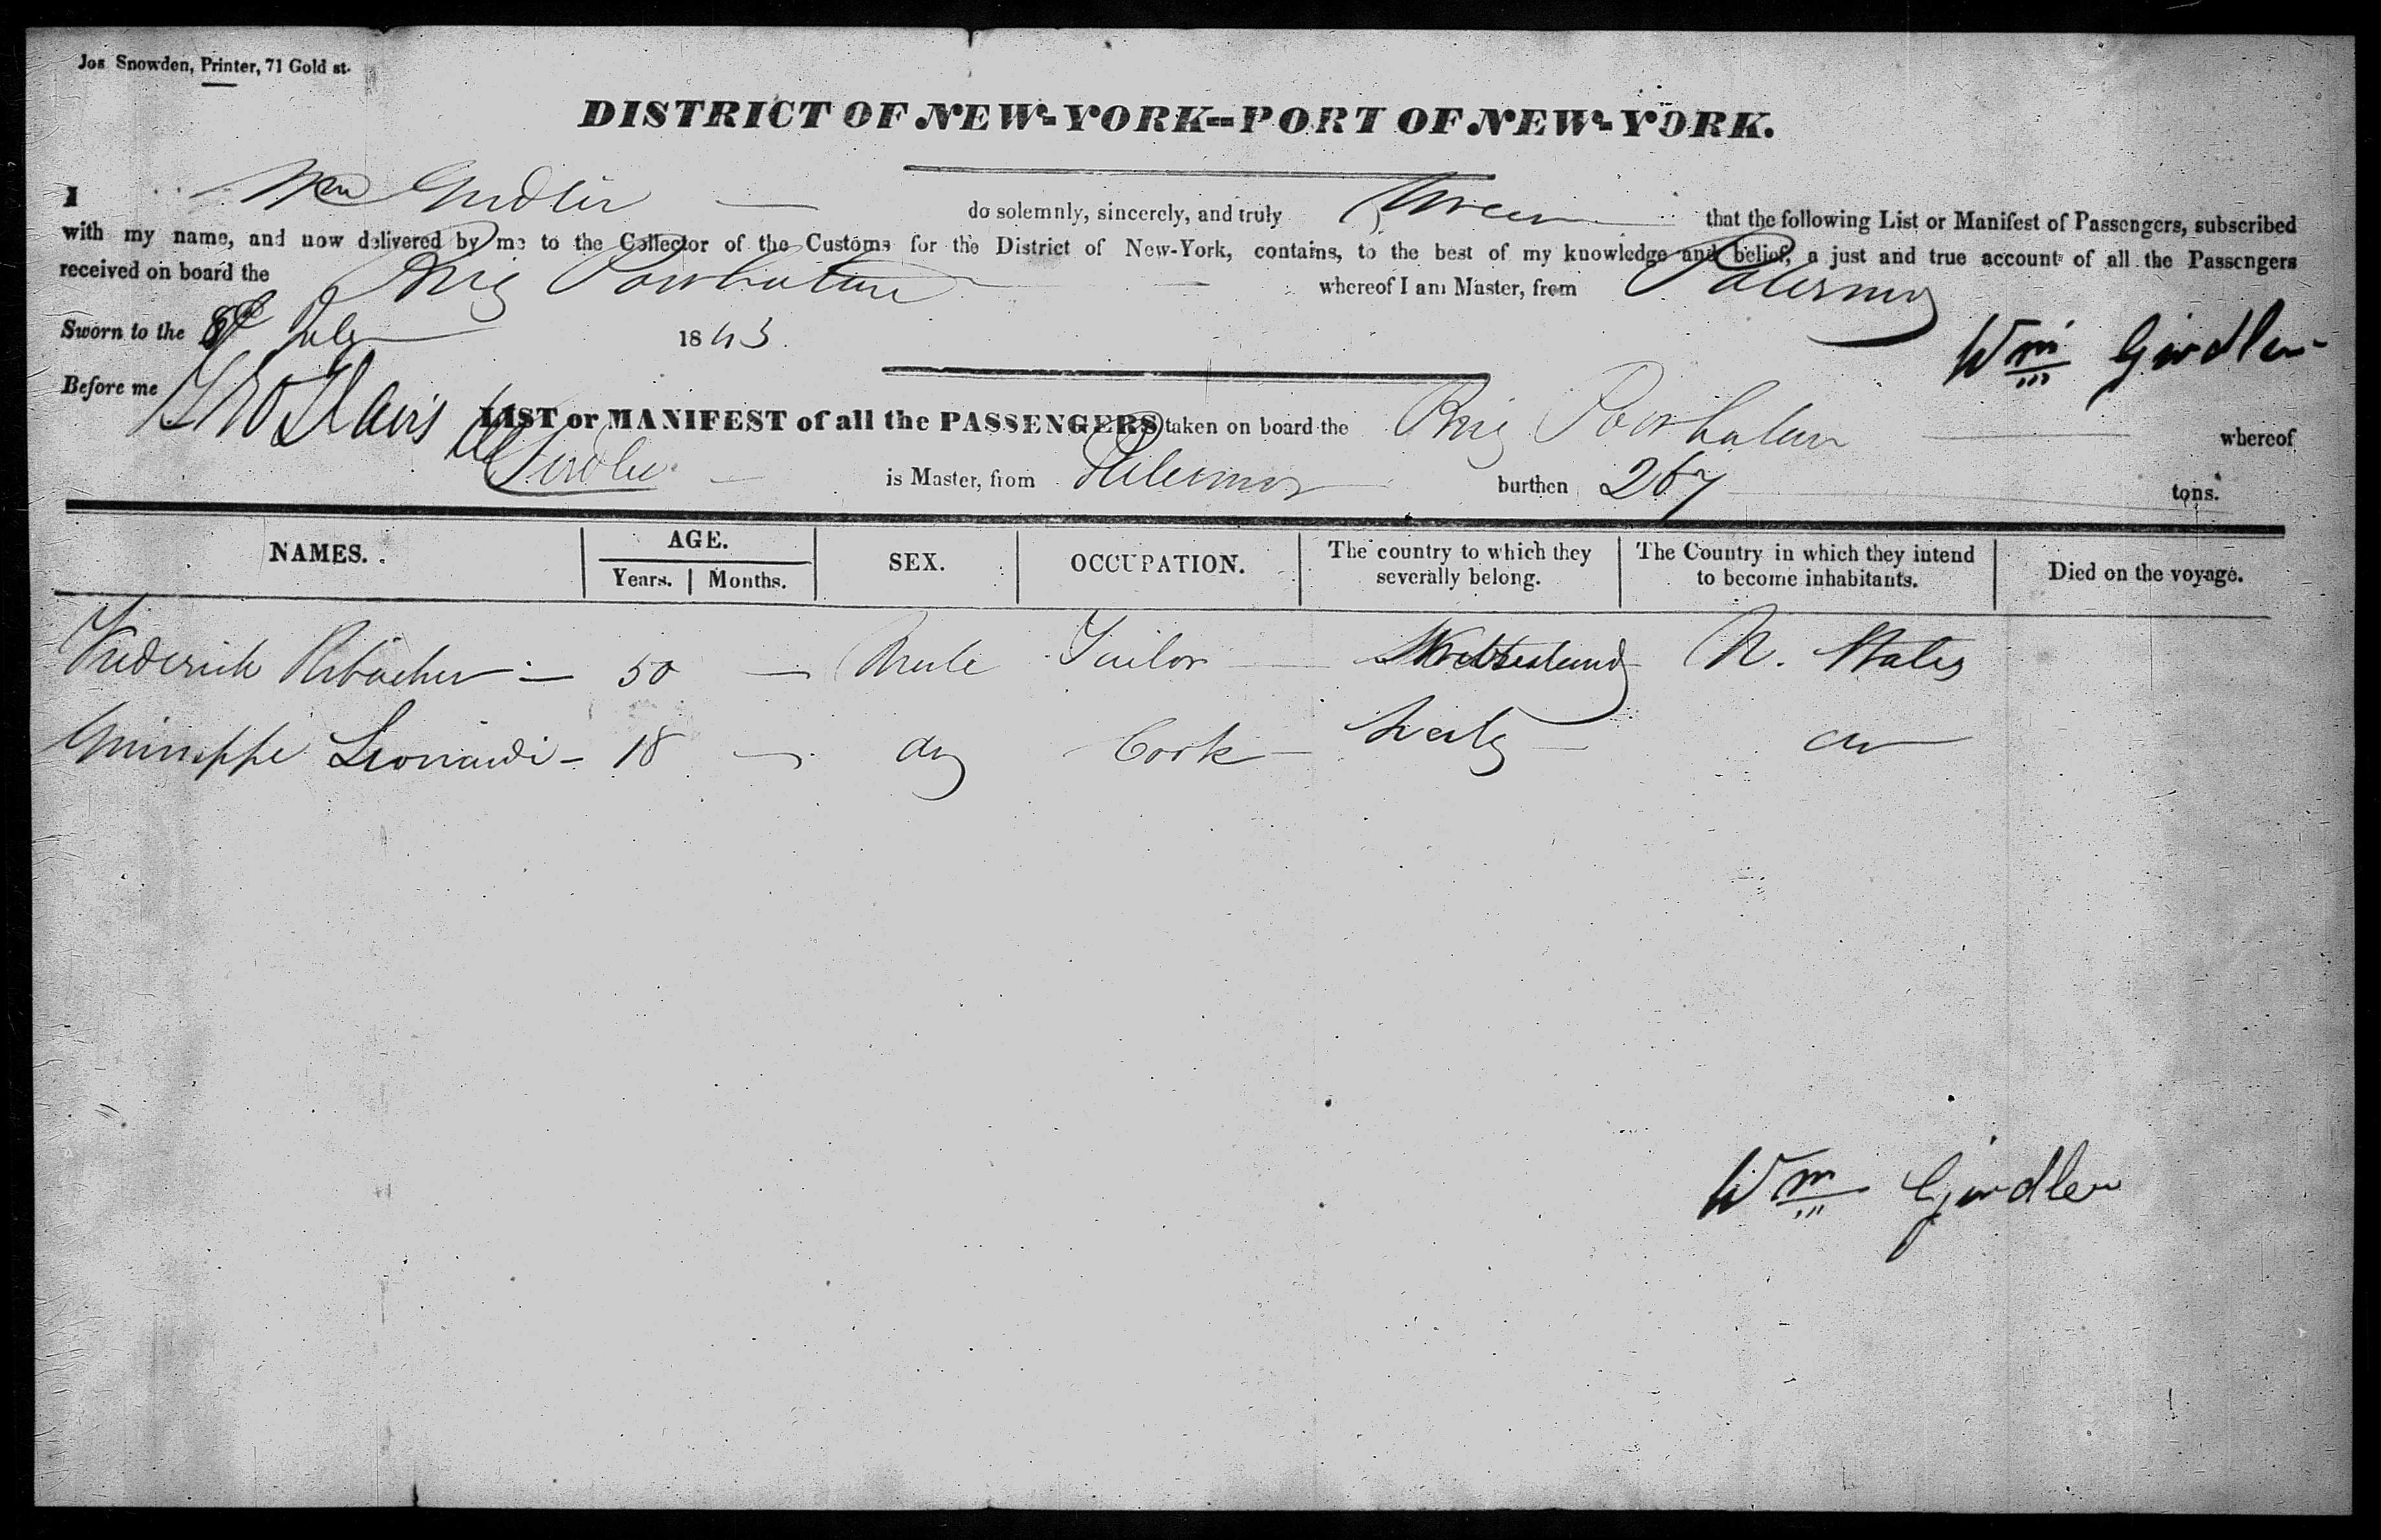 Jos Snowden, Printer, 71 Gold st.
DISTRICT OF NEW-YORK--PORT OF NEW-YORK.
I Wm Girdler do solemnly, sincerely, and truly Swear that the following List or Manifest of Passengers, subscribed
with my name, and now delivered by me to the Collector of the Customs for the District of New-York, contains, to the best of my knowledge and belief, a just and true account of all the Passengers
received on board the Brig Powhatan whereof I am Master, from Palermo
Sworn to the 8th July 1843.
Wm Girdler
Before me Davis
LIST or MANIFEST of all the PASSENGERS taken on board the Brig Powhatan whereof
Girdler is Master, from Palermo burthen 267 tons.
NAMES. AGE. SEX. OCCUPATION. The country to which they severally belong. The Country in which they intend to become inhabitants. Died on the voyage.
Years. Months.
Frederick 50 — Male Tailor U. States
Guiseppe Leonardi 18 — do Cook Sicily do
Wm Girdler